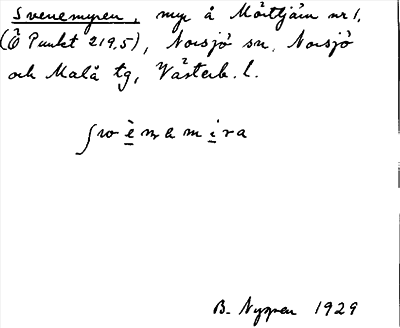 Svenemyren, myr å Mörttjärn nr 1,
(Ö Punkt 219,5), Norsjö sn. Norsjö
och Malå tg, Västerb. l.
ʃwènamira
B. Nygren 1929